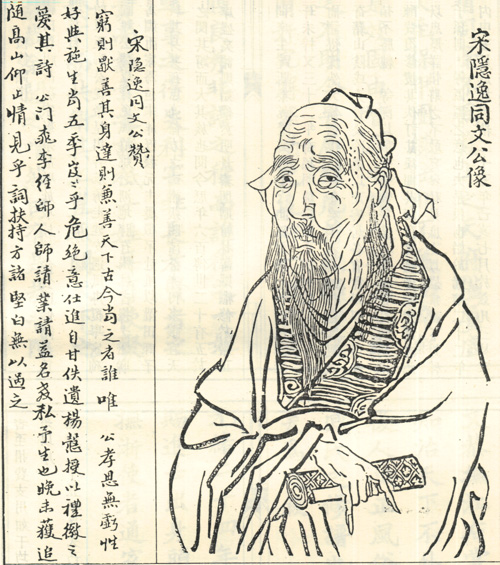 宋隱逸同文公像
宋隱逸同文公贊
窮則獨善其身達則兼善天下古今尚之者誰唯 公孝思無虧性
好與施生當五季岌岌乎危絕意仕進自甘佚遺楊龍授以禮徵之
愛其詩 公門桃李經師人師請業請益名教私予生也晚未獲追
隨高山仰止情見乎詞扶持方諸堅白無以過之